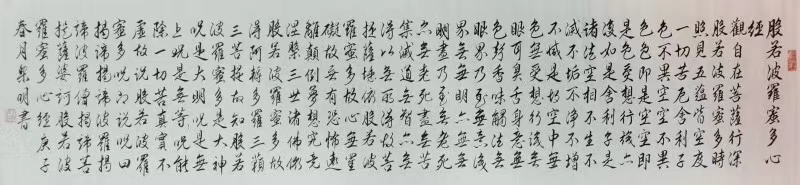 般若波羅蜜多心
經
觀自在菩薩行深
般若波羅蜜多時
照見五蘊皆空度
一切苦厄舍利子
色不異空空不異
色色即是空空即
是色受想行識亦
復如是舍利子是
諸法空相不生不
滅不垢不淨不增
不減是故空中無
色無受想行識無
眼耳鼻舌身意無
色聲香味觸法無
眼界乃至無意識
界無無明亦無無
明盡乃至無老死
亦無老死盡無苦
集滅道無智亦無
得以無所得故菩
提薩埵依般若波
羅蜜多故心無罣
礙故無有恐怖遠
離顛倒夢想究竟
涅槃三世諸佛依
般若波羅蜜多故
得阿耨多羅三藐
三菩提故知般若
波羅蜜多是大神
咒是大明咒是無
上咒是無等等咒能
除一切苦真實不
虛故說般若波羅
蜜多咒即說咒曰
揭諦揭諦波羅揭
諦波羅僧揭諦菩
提薩婆訶般若波
羅蜜多心經庚子
春月明書